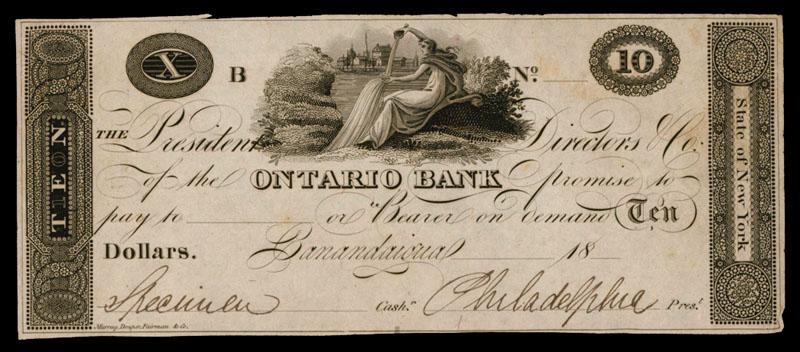 X B Nº. 10
THE President Directors & Co:
of the ONTARIO BANK promise to
pay to or Bearer on demand Ten
Dollars. Canandaigua 18
Specimen Cashr. Philadelphia Prest.
Murray, Draper, Fairman & Co.
TEN
State of New York